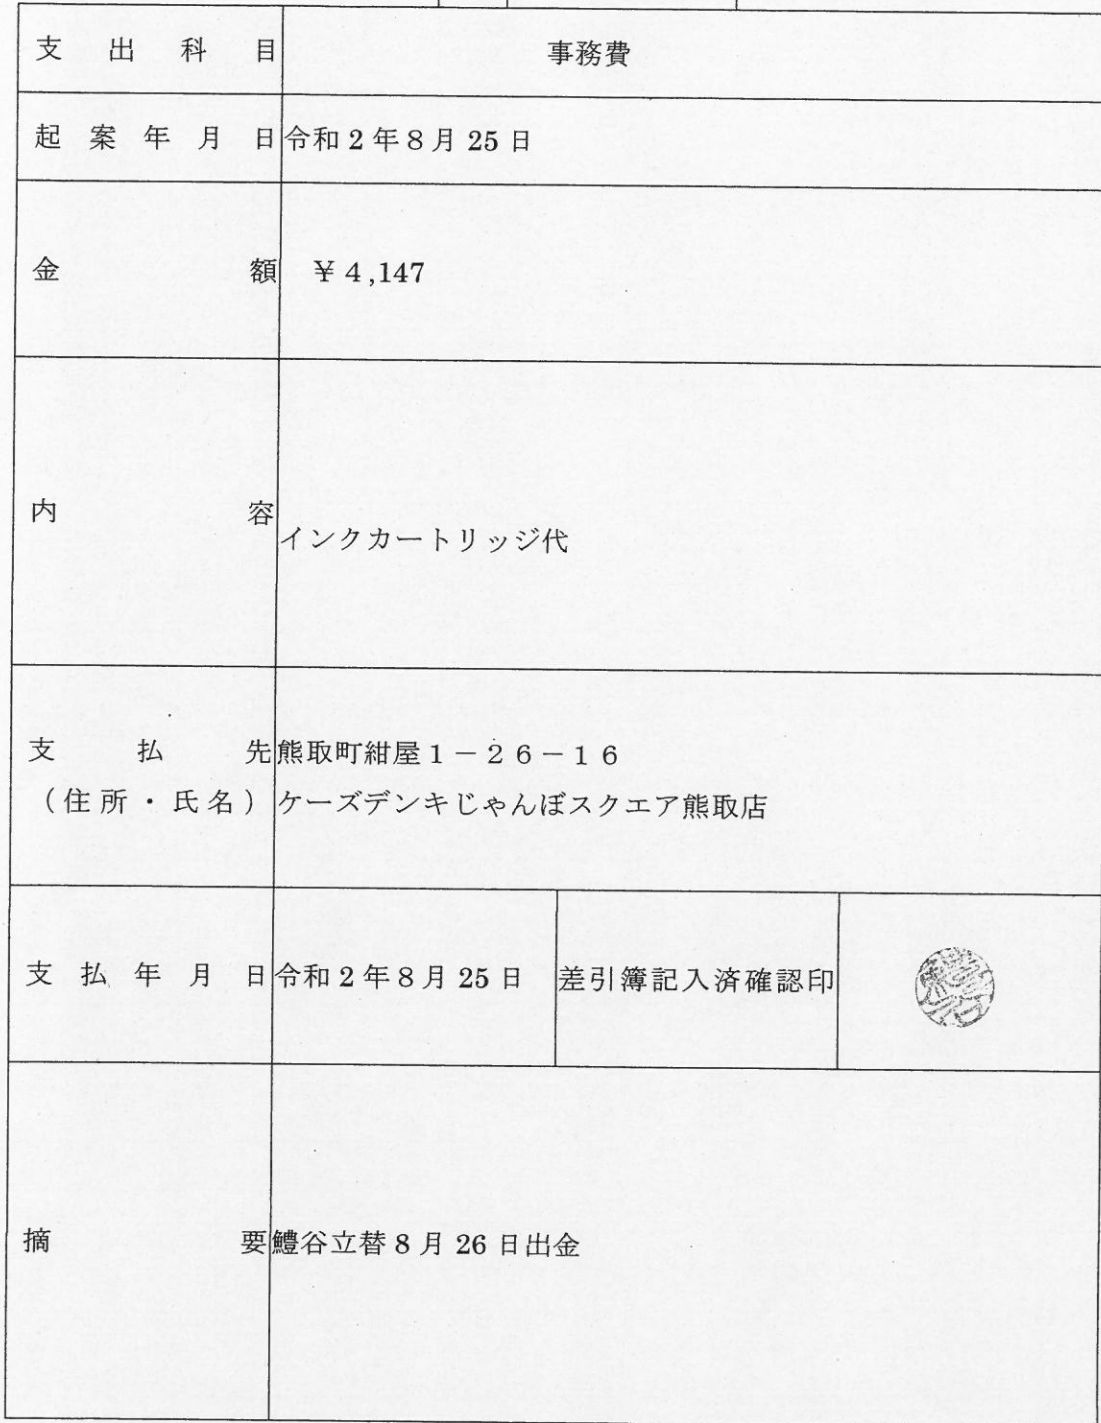 支出科目 事務費
起案年月日 令和2年8月25日
金額 ￥4,147
内容 インクカートリッジ代
支払先 熊取町紺屋１－２６－１６
（住所・氏名） ケーズデンキじゃんぼスクエア熊取店
支払年月日 令和2年8月25日 差引簿記入済確認印
摘要 鱧谷立替8月26日出金